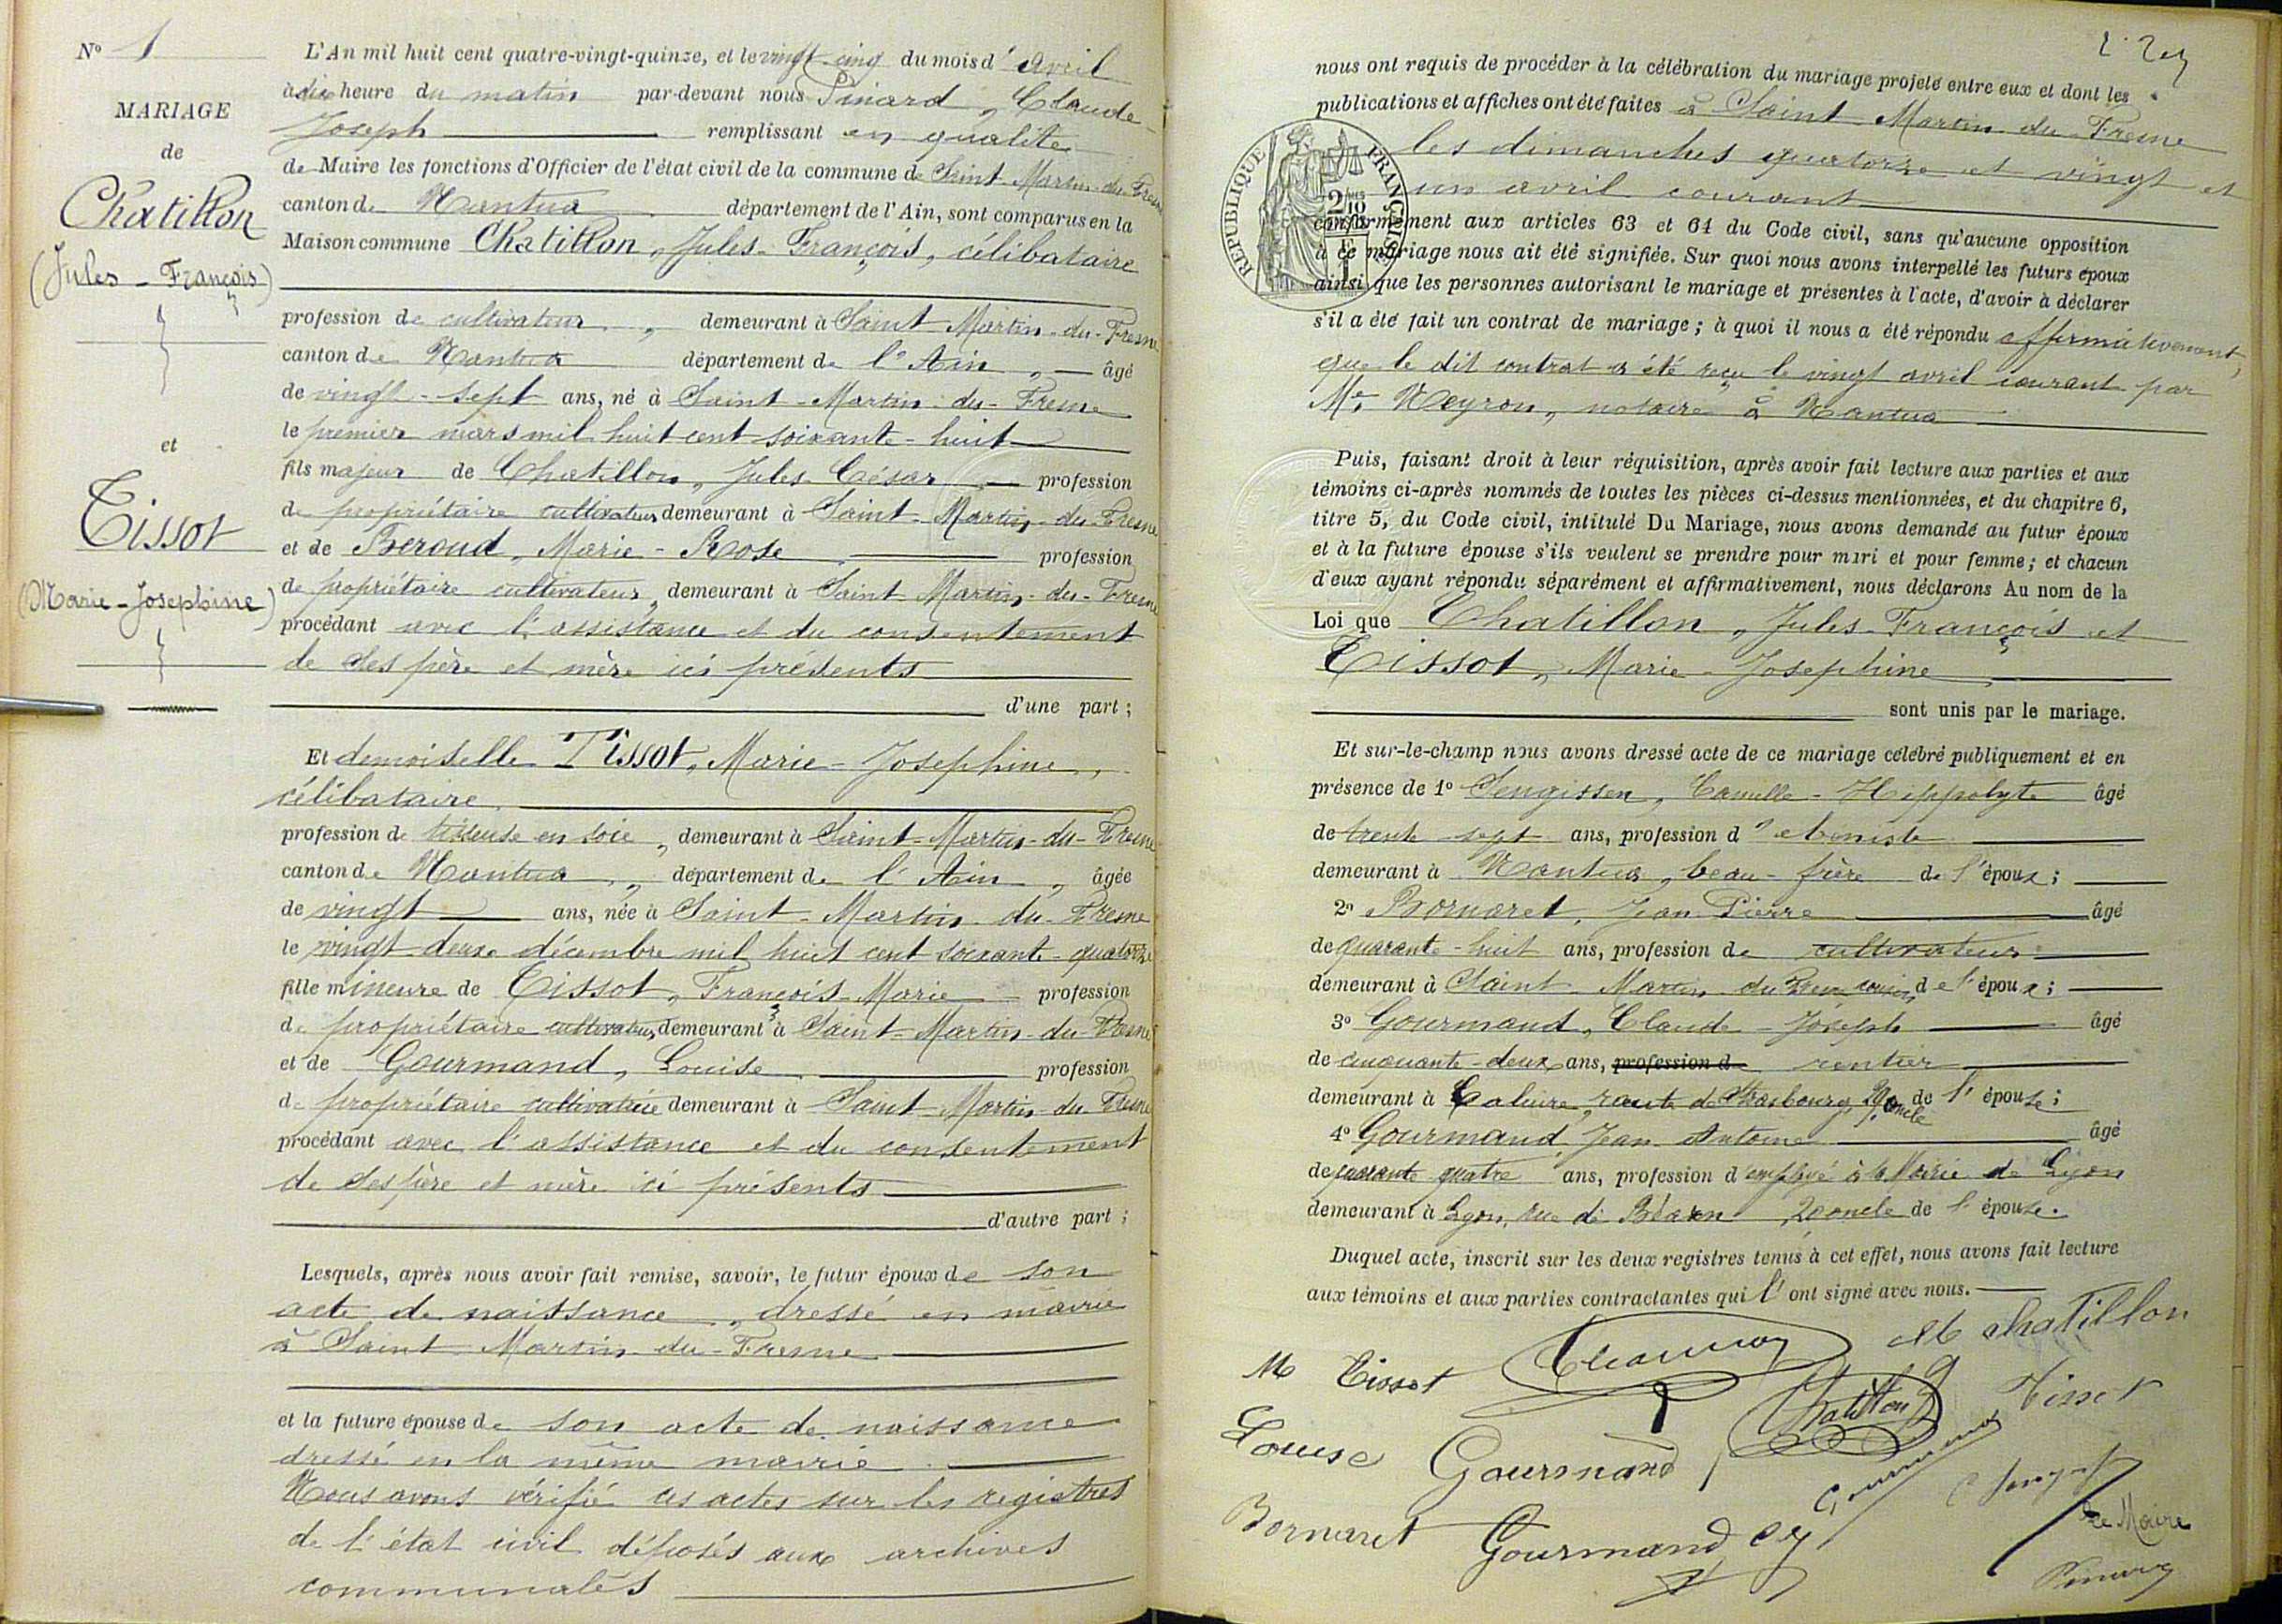 N° 1
MARIAGE
de
Chatillon
(Jules - François)
et
Tissot
(Marie - Josephine)
L'An mil huit cent quatre-vingt-quinze, et le vingt-cinq du mois d'Avril
à dix heure du matin par-devant nous Pinard, Claude
Joseph remplissant en qualité
de Maire les fonctions d'Officier de l'état civil de la commune de Saint-Martin-du-Fresne
canton de Nantua département de l'Ain, sont comparus en la
Maison commune Chatillon, Jules-François, célibataire
profession de cultivateur, demeurant à Saint Martin-du-Fresne
canton de Nantua département de l'Ain, âgé
de vingt-sept ans, né à Saint-Martin-du-Fresne
le premier mars mil huit cent soixante-huit
fils majeur de Chatillon, Jules César profession
de propriétaire cultivateur demeurant à Saint-Martin-du-Fresne
et de Beroud, Marie-Rose profession
de propriétaire cultivateur, demeurant à Saint Martin-du-Fresne
procédant avec l'assistance et du consentement
de ses père et mère ici présents
d'une part ;
Et demoiselle Tissot, Marie-Josephine,
célibataire
profession de tisseuse en soie, demeurant à Saint-Martin-du-Fresne
canton de Nantua, département de l'Ain, âgée
de vingt ans, née à Saint-Martin-du-Fresne
le vingt-deux décembre mil huit cent soixante-quatorze
fille mineure de Tissot, François-Marie profession
de propriétaire cultivateur, demeurant à Saint-Martin-du-Fresne
et de Gourmand, Louise profession
de propriétaire cultivatrice demeurant à Saint-Martin-du-Fresne
procédant avec l'assistance et du consentement
de ses père et mère ici présents
d'autre part ;
Lesquels, après nous avoir fait remise, savoir, le futur époux de son
acte de naissance, dressé en mairie
à Saint-Martin-du-Fresne
et la future épouse de son acte de naissance
dressé en la même mairie
Nous avons vérifié ces actes sur les registres
de l'état civil déposés aux archives
communales
nous ont requis de procéder à la célébration du mariage projeté entre eux et dont les
publications et affiches ont été faites à Saint-Martin-du-Fresne
les dimanches quatorze et vingt et
un avril courant
conformément aux articles 63 et 64 du Code civil, sans qu'aucune opposition
à ce mariage nous ait été signifiée. Sur quoi nous avons interpellé les futurs époux
ainsi que les personnes autorisant le mariage et présentes à l'acte, d'avoir à déclarer
s'il a été fait un contrat de mariage ; à quoi il nous a été répondu affirmativement,
que le dit contrat a été reçu le vingt avril courant par
Me Neyron, notaire à Nantua
RÉPUBLIQUE FRANÇAISE
Puis, faisant droit à leur réquisition, après avoir fait lecture aux parties et aux
témoins ci-après nommés de toutes les pièces ci-dessus mentionnées, et du chapitre 6,
titre 5, du Code civil, intitulé Du Mariage, nous avons demandé au futur époux
et à la future épouse s'ils veulent se prendre pour mari et pour femme ; et chacun
d'eux ayant répondu séparément et affirmativement, nous déclarons Au nom de la
Loi que Chatillon, Jules-François et
Tissot, Marie-Josephine
sont unis par le mariage.
Et sur-le-champ nous avons dressé acte de ce mariage célébré publiquement et en
présence de 1° Sengissen, Camille-Hippolyte âgé
de trente sept ans, profession d'ebeniste
demeurant à Nantua, beau-frère de l'époux ;
2° Bornaret, Jean Pierre âgé
de quarante-huit ans, profession de cultivateur
demeurant à Saint-Martin-du-Fresne cousin de l'époux ;
3° Gourmand, Claude-Joseph âgé
de cinquante-deux ans, profession d rentier
demeurant à Caluire, route de Strasbourg, oncle de l'épouse ;
4° Gourmand, Jean Antoine âgé
de quarante quatre ans, profession d'employé à la Mairie de Lyon
demeurant à Lyon, rue de Béarn, oncle de l'épouse.
Duquel acte, inscrit sur les deux registres tenus à cet effet, nous avons fait lecture
aux témoins et aux parties contractantes qui l'ont signé avec nous.
chatillon
M Tissot
Chatillon
Tissot
Louise Gourmand
Gourmand
Bornaret
Gourmand
Le Maire
Pinard